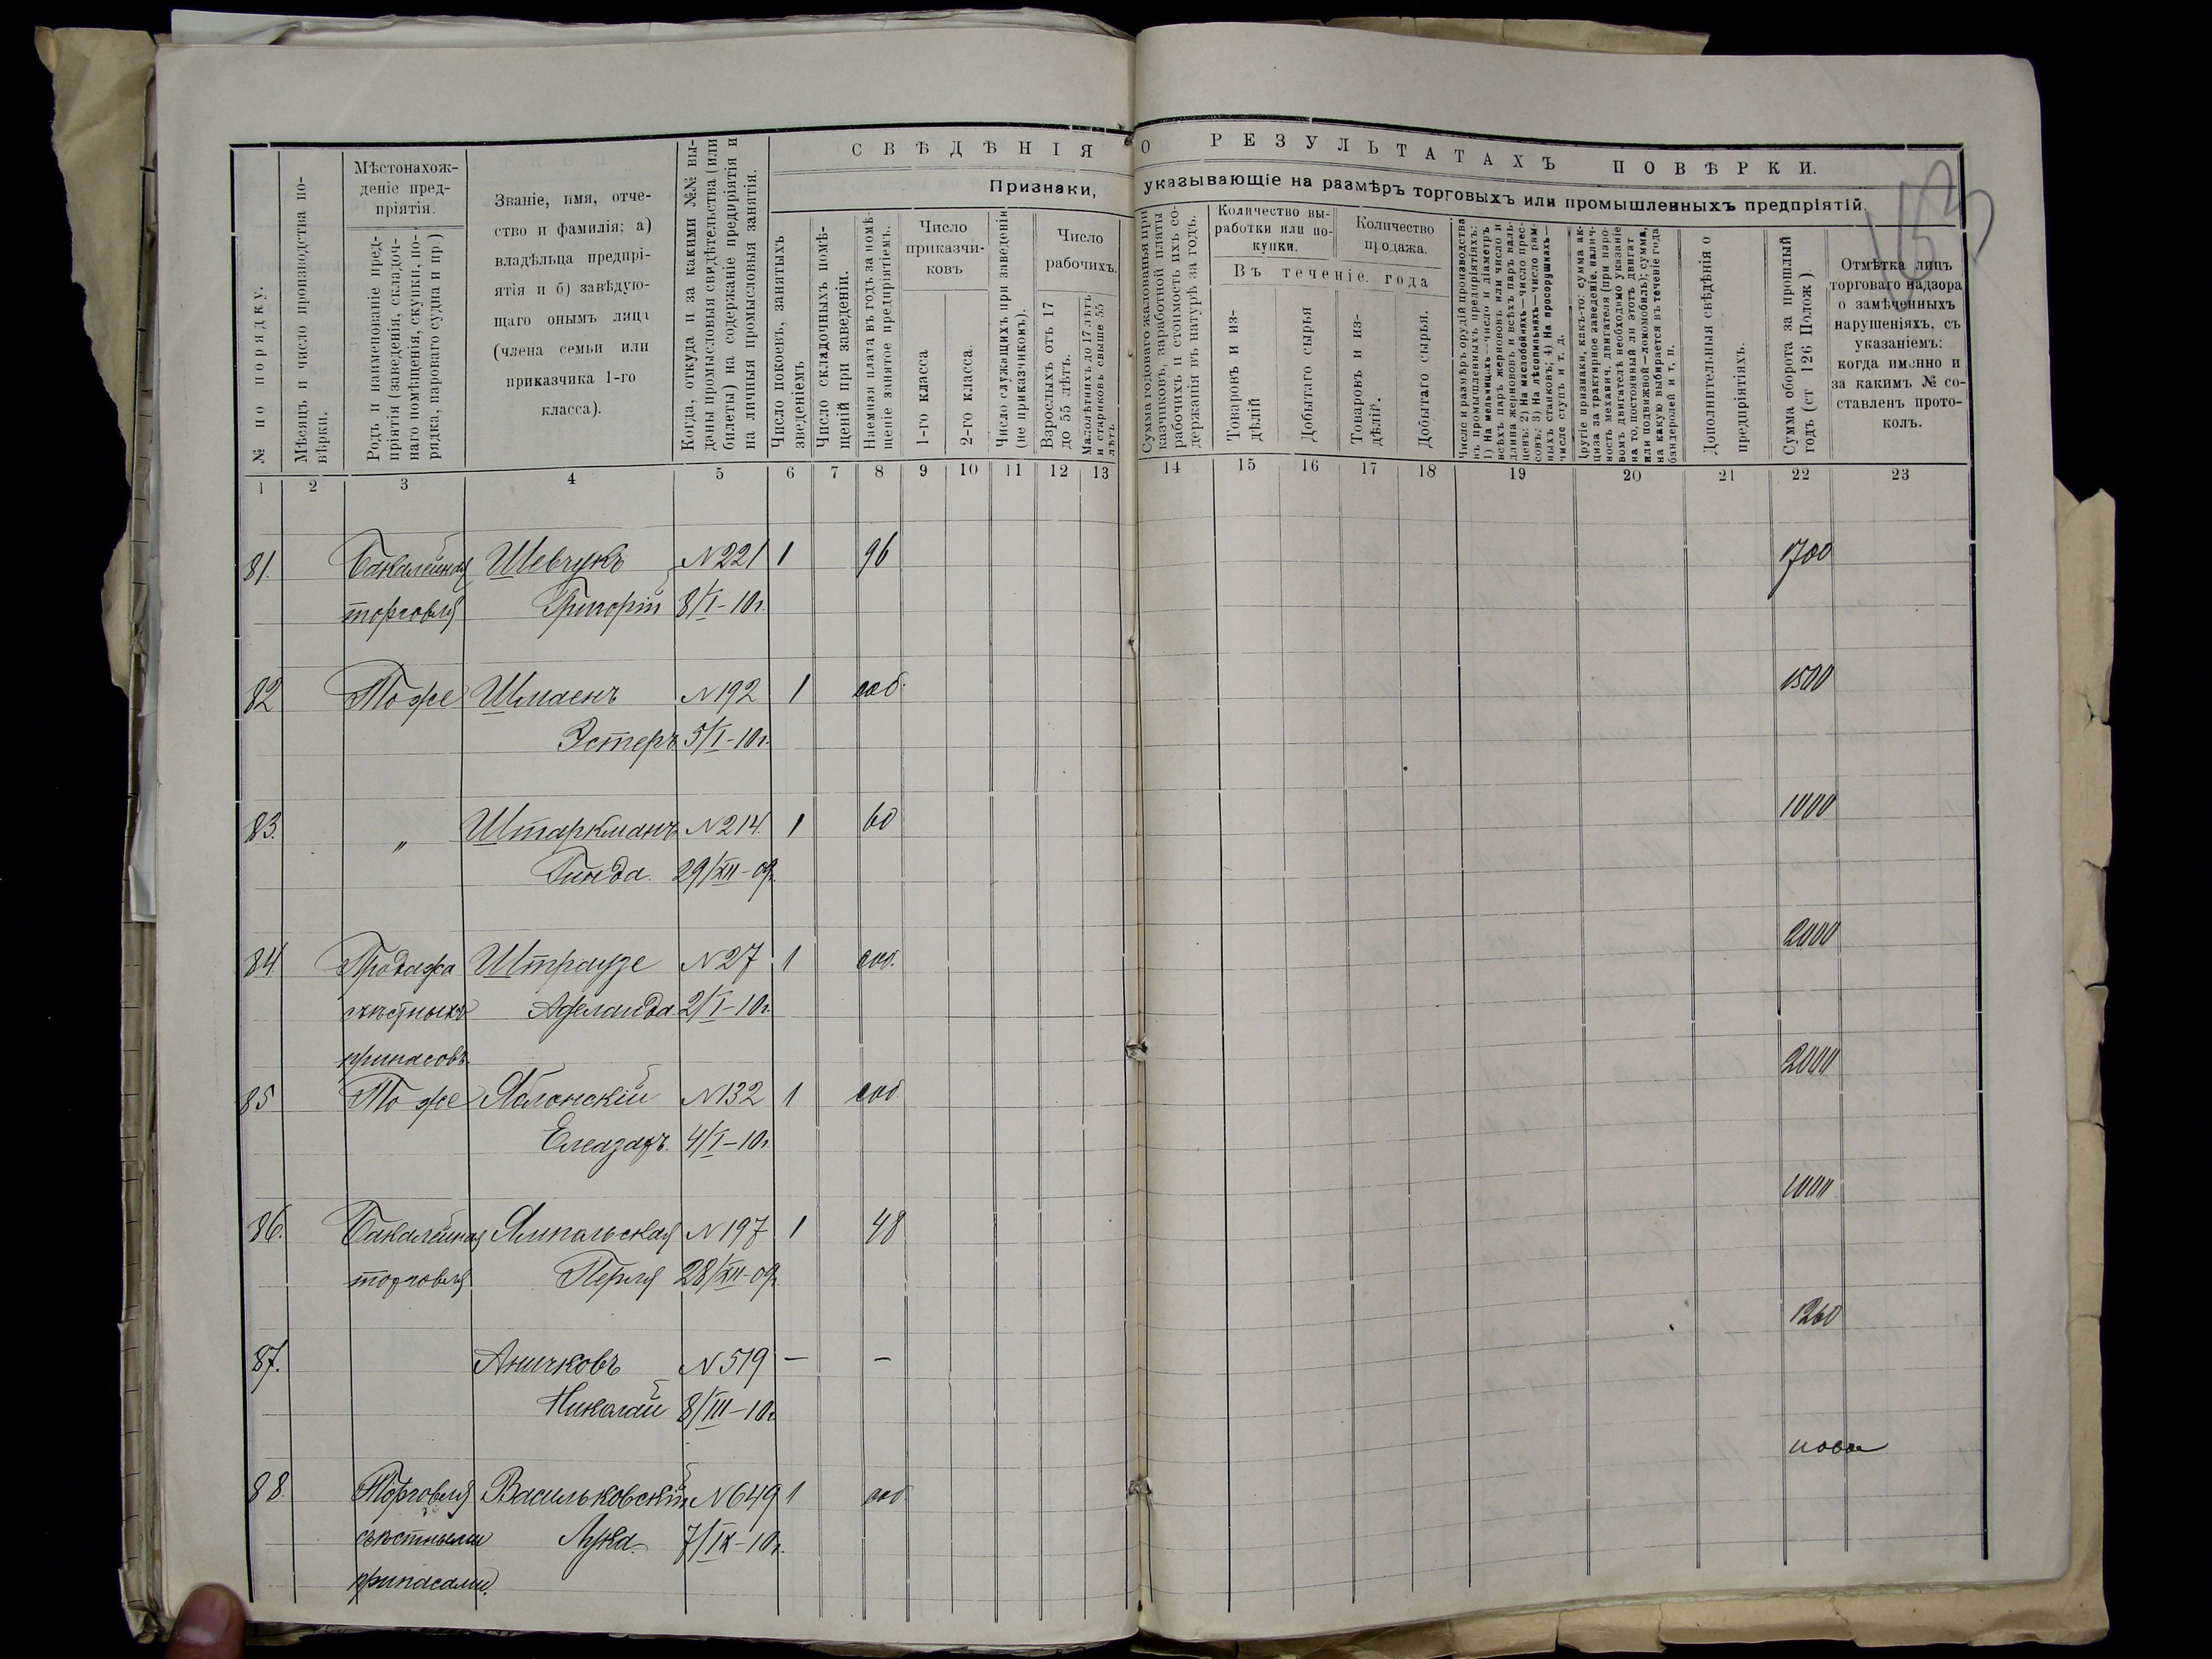 СВѢДѢНІЯ О РЕЗУЛЬТАТАХЪ ПОВѢРКИ.
Признаки, указывающіе на размѣръ торговыхъ или промышленныхъ предпріятій.
№ по порядку.
Мѣсяцъ и число производства повѣрки.
Мѣстонахож-
деніе пред-
пріятія.
Родъ и наименованіе пред-
пріятія (заведенія, складоч-
наго помѣщенія, скупки, по-
рядка, пароваго судна и пр.)
Званіе, имя, отче-
ство и фамилія: а)
владѣльца предпрі-
ятія и б) завѣдую-
щаго онымъ лица
(члена семьи или
приказчика 1-го
класса).
Когда, откуда и за какими №№ вы-
даны промысловыя свидѣтельства (или
билеты) на содержаніе предпріятія и
на личныя промысловыя занятія.
Число покоевъ, занятыхъ
зведеніемъ
Число складочныхъ помѣ-
щеній при заведеніи.
Наемная плата въ годъ за помѣ-
щеніе занятое предпріятіемъ.
Число
приказчи-
ковъ
1-го класса
2-го класса.
Число служащихъ при заведеніи
(не приказчиковъ).
Число
рабочихъ.
Взрослыхъ отъ 17
до 55 лѣтъ.
Малолѣтнихъ до 17 лѣтъ
и стариковъ свыше 55
лѣтъ.
Сумма годоваго жалованья при-
казчиковъ, заработной платы
рабочихъ и стоимость ихъ со-
держанія въ натурѣ за годъ.
Количество вы-
работки или по-
купки.
Количество
продажа.
Въ теченіе года
Товаровъ и из-
дѣлій
Добытаго сырья
Товаровъ и из-
дѣлій.
Добытаго сырья.
Число и размѣръ орудій производства
въ промышленныхъ предпріятіяхъ:
1) На мельницахъ—число и діаметръ
всѣхъ паръ жернововъ или число и
длина жернововъ и всѣхъ паръ валь-
цевъ: 2) На маслобойняхъ—число прес-
совъ; 3) На лѣсопильняхъ—число рам-
ныхъ станковъ; 4) На просорушкахъ—
число ступъ и т. д.
Другіе признаки, какъ-то: сумма ак-
циза за трактирное заведеніе, налич-
ность механич. двигателя (при паро-
вомъ двигателѣ необходимо указаніе
на то, постоянный ли этотъ двигат
или подвижной—локомобиль); сумма,
на какую выбирается въ теченіе года
бандеролей и т. п.
Дополнительныя свѣдѣнія о
предпріятіяхъ.
Сумма оборота за прошлый
годъ (ст 126 Полож)
Отмѣтка лицъ
торговаго надзора
о замѣченныхъ
нарушеніяхъ, съ
указаніемъ:
когда именно и
за какимъ № со-
ставленъ прото-
колъ.
1 2 3 4 5 6 7 8 9 10 11 12 13 14 15 16 17 18 19 20 21 22 23
81. Бакалейная Шевчукъ №221 1 96 1700
торговля Григорій 8/I-10г.
82 То же Шмаенъ №192 1 соб. 1500
Эстеръ 5/I-10г.
83. „ Штаркманъ №214. 1 60 1000
Гинда. 29/XII-09г.
84 Продажа Штраузе №27 1 соб. 2000
съѣстныхъ Аделаида. 2/I-10г.
припасовъ.
85 То же Яблонскій №132 1 соб. 2000
Елеазаръ. 4/I-10г.
86. Бакалейная Ямпольская №197 1 48 1000
торговля Перля 28/XII-09г.
87. Аничковъ №519 — — 1260
Николай 8/III-10г.
88. Торговля Васильковскій №649 1 соб. новое
съѣстными Лука. 7/IX-10г.
припасами.